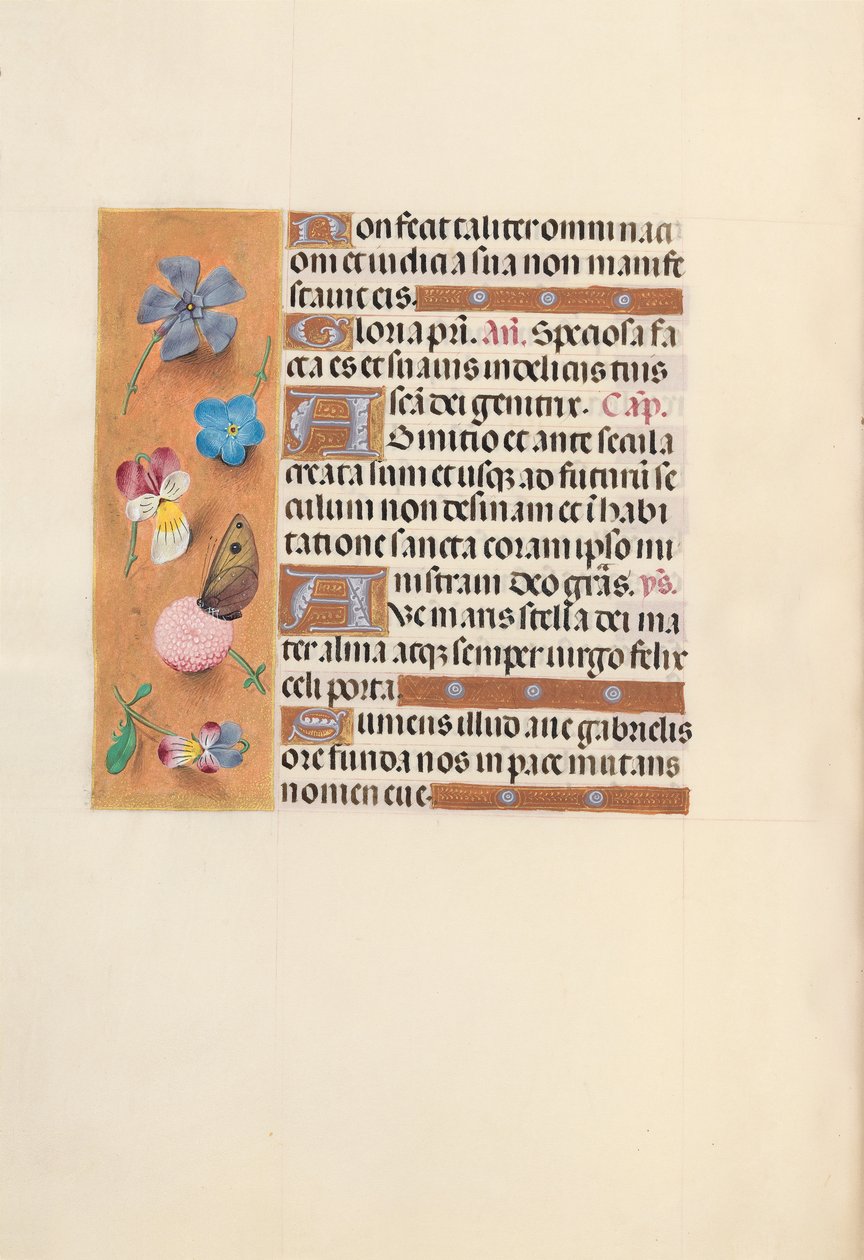 Non fecit taliter omni naci
oni et iudicia sua non manife
stavit eis.
Gloria pr̄i. An̄. Speciosa fa
cta es et suavis in deliciis tuis
sc̄a dei genitrix. Cap̄.
AB initio et ante secula
creata sum et usqꝫ ad futurū se
culum non desinam et ī habi
tatione sancta coram ipso mi
nistravi Deo gr̄as. ẏs.
AVe maris stella dei ma
ter alma atqꝫ semper virgo felix
celi porta.
Sumens illud ave gabrielis
ore funda nos in pace mutans
nomen eve.